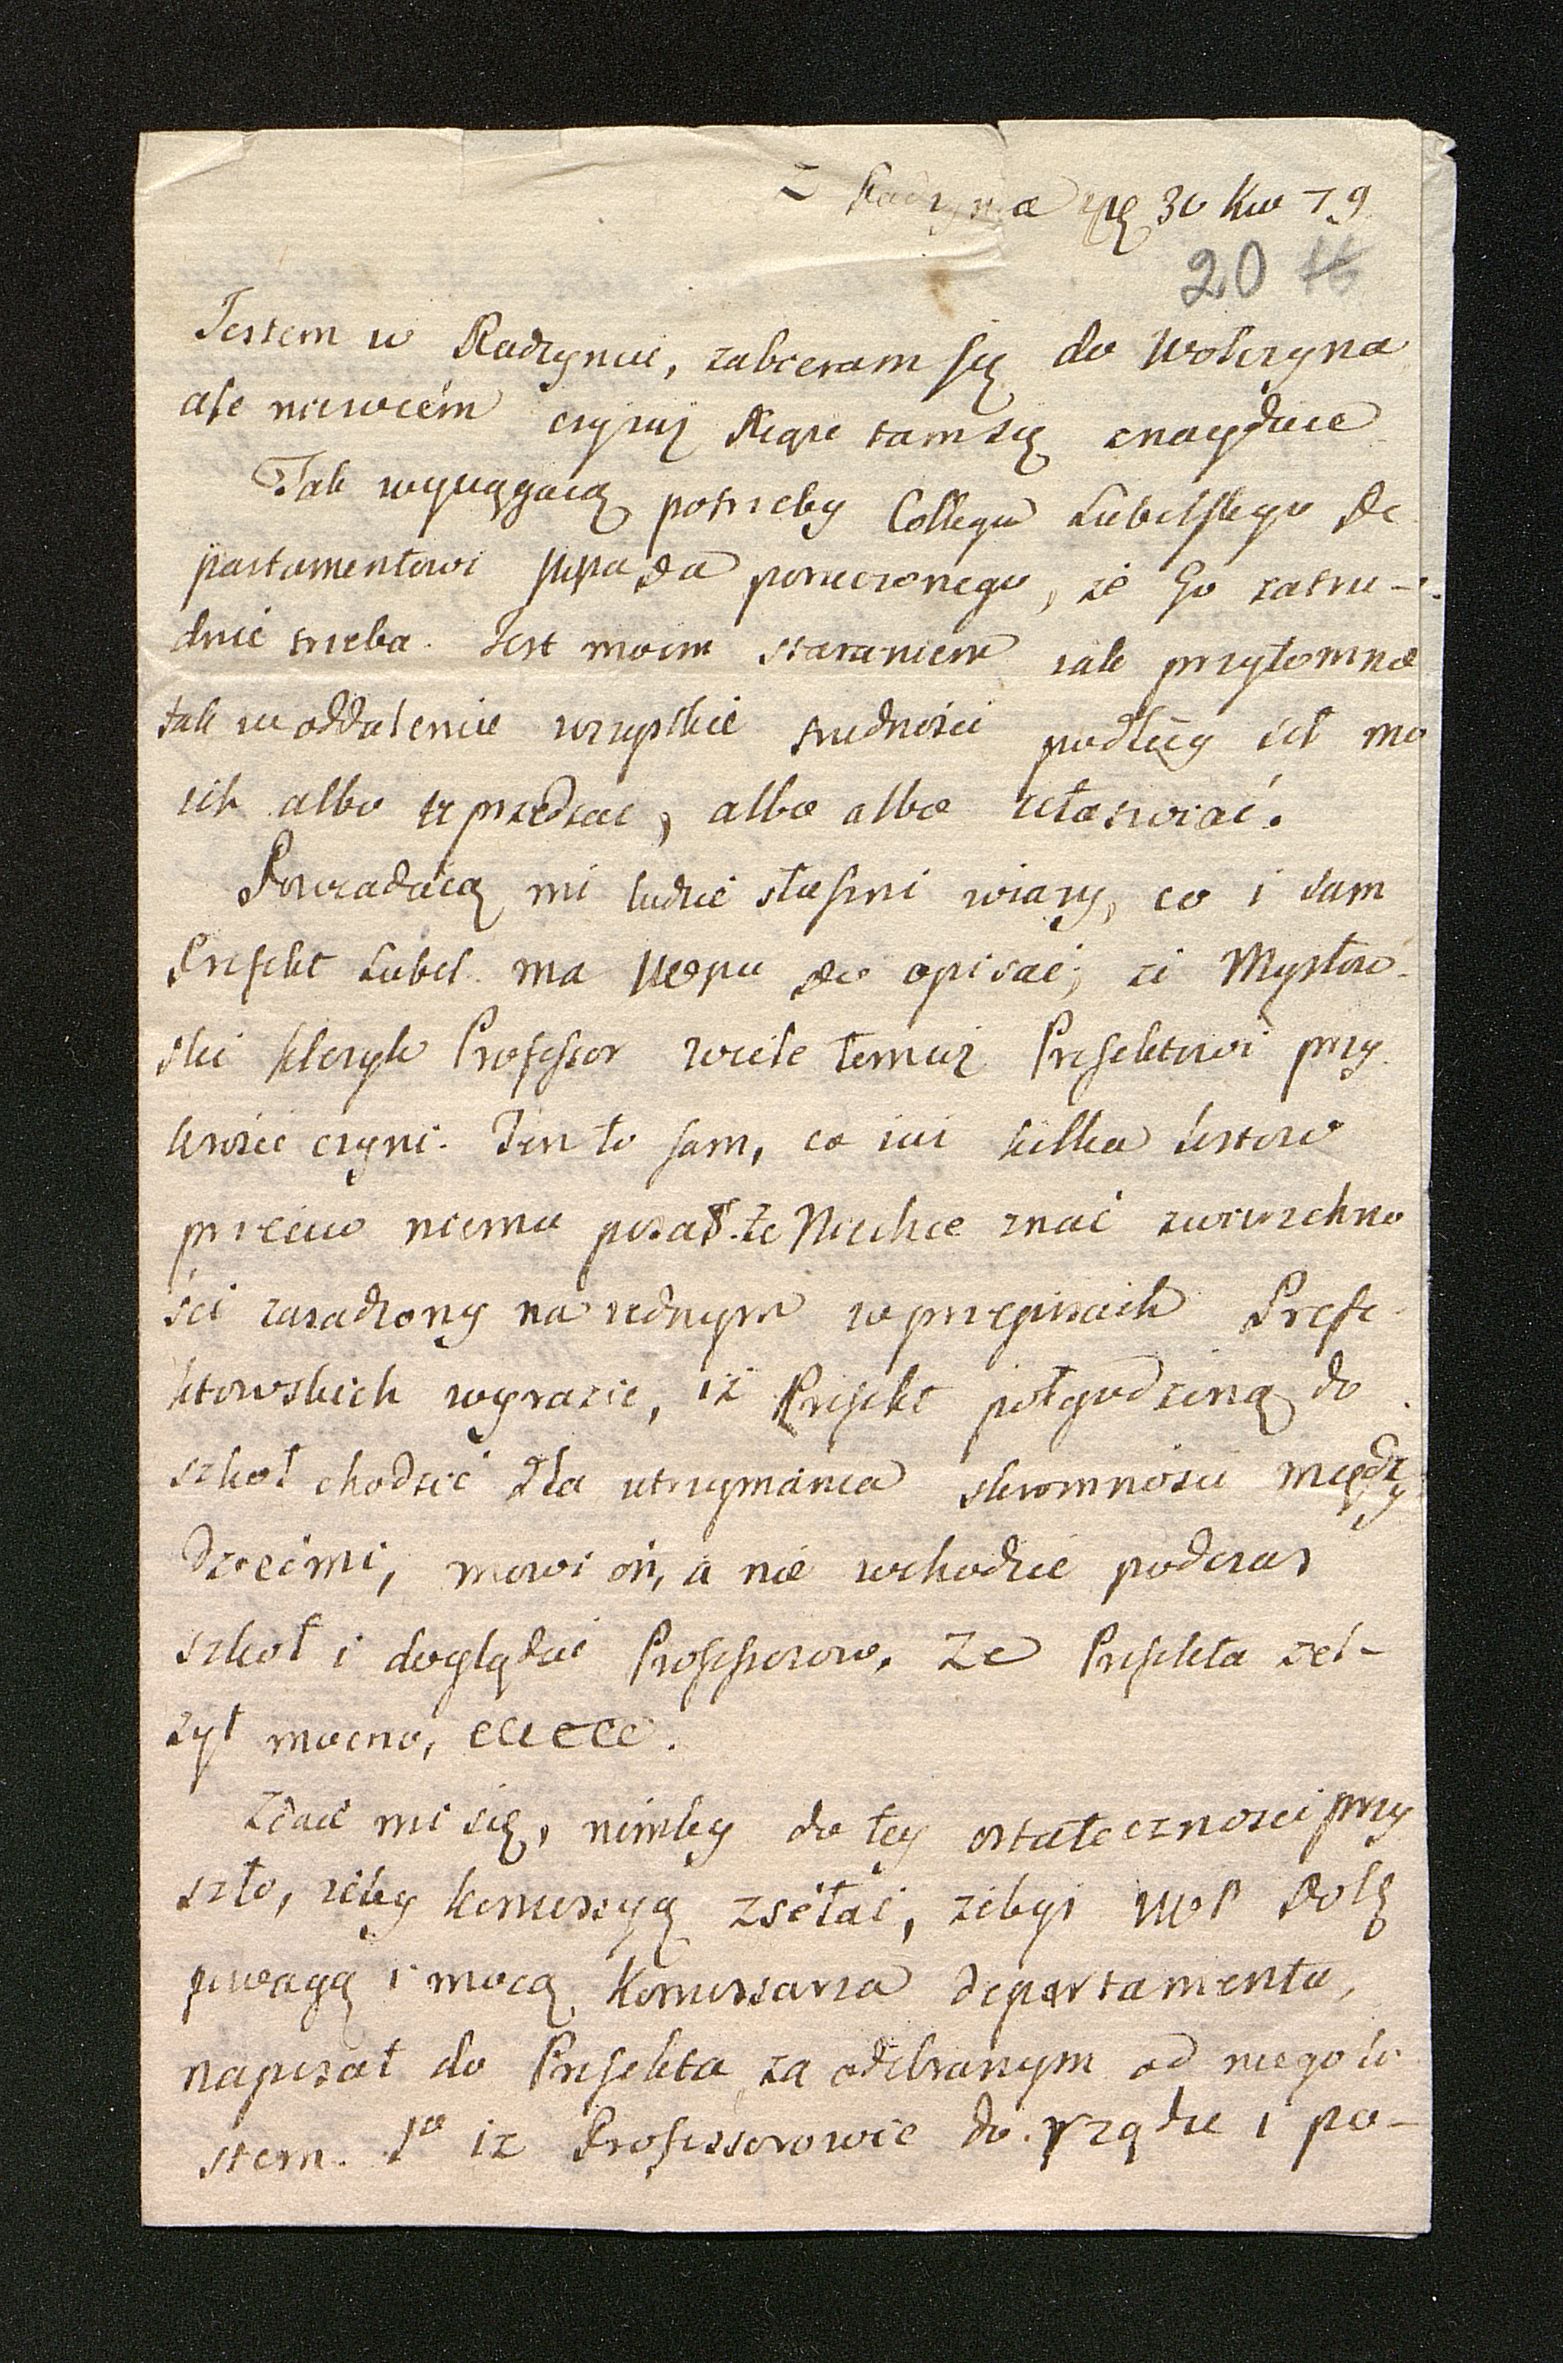 Z Radzynia 30 Kw 79
20 16
Jestem w Radzyniu, zabieram się do Wołczyna
ale niewiem czyiuż Xiąże tam się znayduie
Tak wyciągaią potrzeby Collegii Lubelskiego De
partamentowi poruczonego, że go zatru-
dnić trzeba. Jest moim staraniem iak przytomne
tak w oddaleniu wszystkie trudności podług sił mo
ich albo uprzedzać, albo albo ułatwiać.
Powiadaią mi ludzie słuszni wiary, co i sam
Prefekt Lubel. ma do opisać, że Mysłow-
ski kleryk Professor wiele temuż Prefektowi przy
krości czyni. Ten to sam, co iuż kilka listow
przeciw niemu pisał. że Niechce znać zwierzchno
ści zasadzony na iednym w przepisach Prefe-
ktowskich wyrazie, iż Prefekt połgodziną do
szkoł chodzić dla utrzymania skromności między
dziećmi, mowi on, a nie wchodzić podczas
szkoł i doglądać Professorow, Ze Prefekta zel-
żył mocno, etc etc.
Zdaie mi się, nimby do tey ostateczności przy
szło, żeby kommissyą zsełać, żebyś WP Dob
powagą i mocą Kommissarza departamentu,
napisał do Prefekta za odebranym od niego li
stem. 1o iż Professorowie do rządu i po-